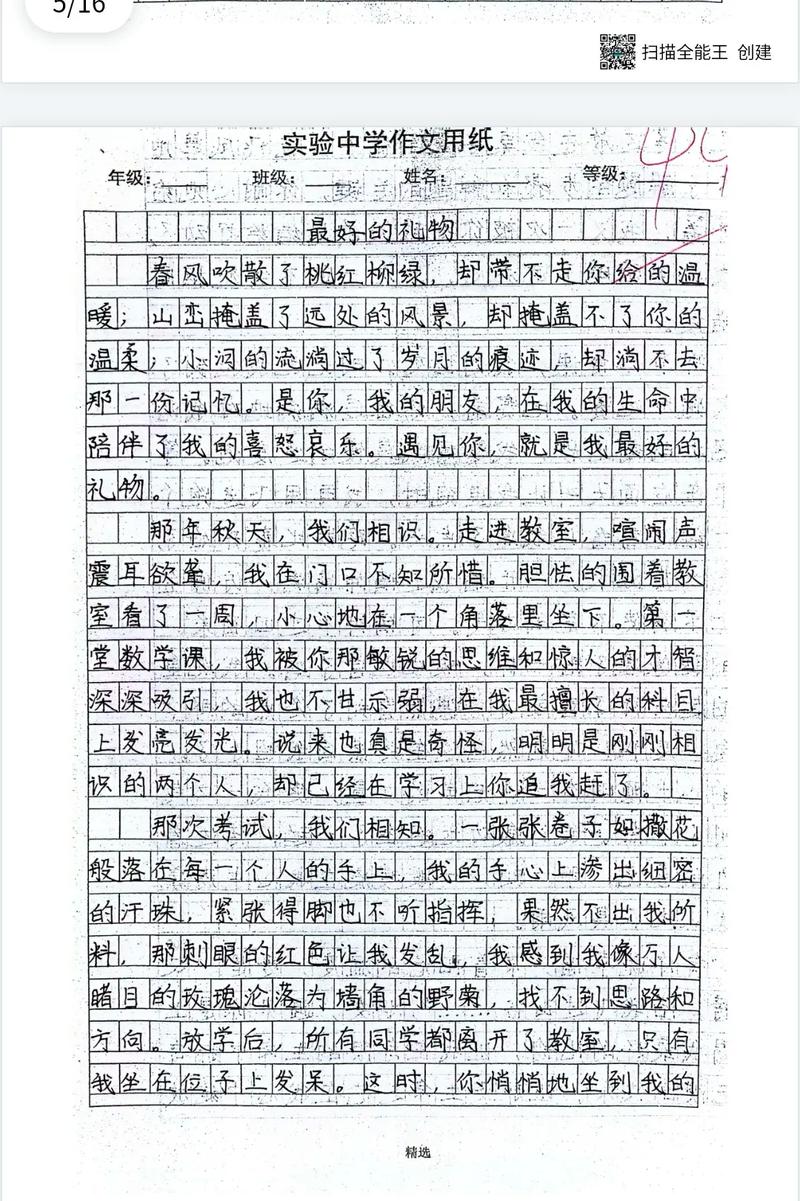 5/16
扫描全能王 创建
实验中学作文用纸
年级： 班级： 姓名： 等级：
最好的礼物
春风吹散了桃红柳绿，却带不走你给的温
暖；山峦掩盖了远处的风景，却掩盖不了你的
温柔；小河的流淌过了岁月的痕迹，却淌不去
那一份记忆。是你，我的朋友，在我的生命中
陪伴了我的喜怒哀乐。遇见你，就是我最好的
礼物。
那年秋天，我们相识。走进教室，喧闹声
震耳欲聋，我在门口不知所惜。胆怯的围着教
室看了一周，小心地在一个角落里坐下。第一
堂数学课，我被你那敏锐的思维和惊人的才智
深深吸引，我也不甘示弱，在我最擅长的科目
上发亮发光。说来也真是奇怪，明明是刚刚相
识的两个人，却已经在学习上你追我赶了。
那次考试，我们相知。一张张卷子如撒花
般落在每一个人的手上，我的手心上渗出细密
的汗珠，紧张得脚也不听指挥，果然不出我所
料，那刺眼的红色让我发乱，我感到我像万人
睹目的玫瑰沦落为墙角的野菊，找不到思路和
方向。放学后，所有同学都离开了教室，只有
我坐在位子上发呆。这时，你悄悄地坐到我的
精选